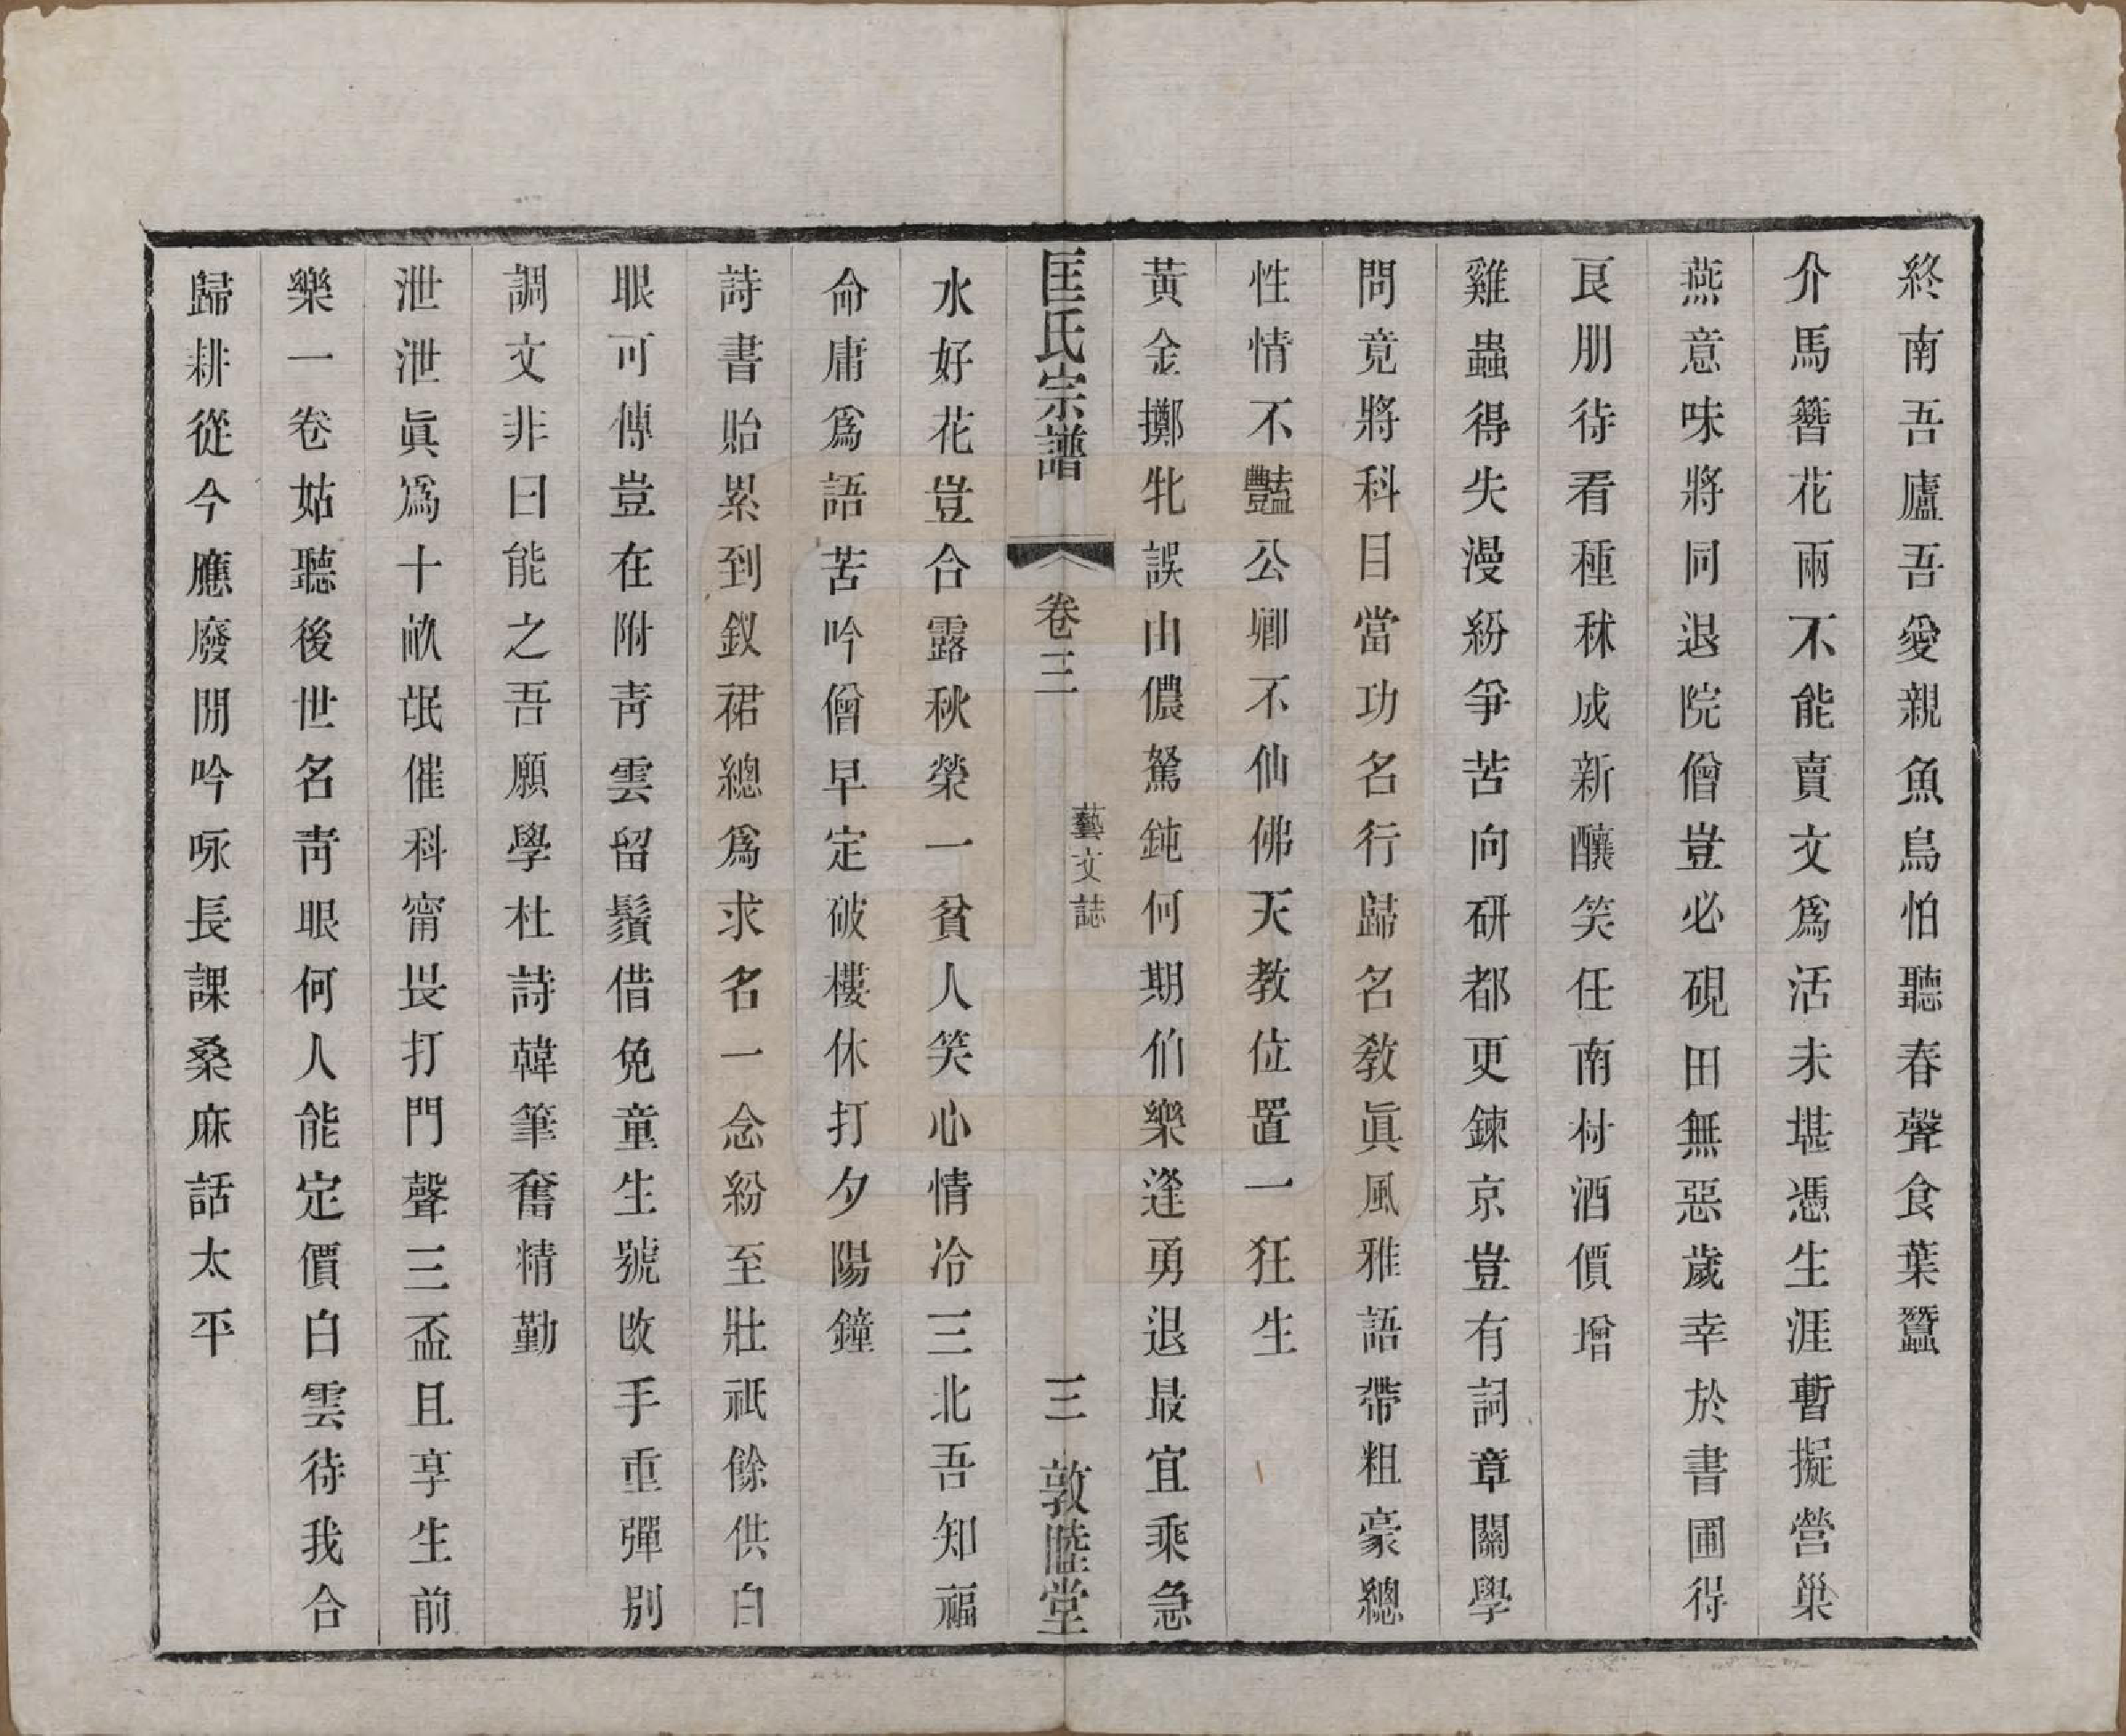 終南吾廬吾愛親魚鳥怕聽春聲食葉蠶
介馬簪花兩不能賣文爲活未堪憑生涯暫擬營巢
燕意味將同退院僧豈必硯田無惡歲幸於書圃得
良朋待看種秫成新釀笑任南村酒價增
雞蟲得失漫紛爭苦向研都更鍊京豈有詞章關學
問竟將科目當功名行歸名教眞風雅語帶粗豪總
性情不豔公卿不仙佛天教位置一狂生
黃金擲牝誤由儂駑鈍何期伯樂逢勇退最宜乘急
匡氏宗譜 卷三 藝文誌 三 敦睦堂
水好花豈合露秋榮一貧人笑心情冷三北吾知福
命庸爲語苦吟僧早定破樓休打夕陽鐘
詩書貽累到釵裙總爲求名一念紛至壯祇餘供白
眼可傳豈在附靑雲留鬚借免童生號改手重彈別
調文非曰能之吾願學杜詩韓筆奮精勤
泄泄眞爲十畝氓催科甯畏打門聲三盃且享生前
樂一卷姑聽後世名靑眼何人能定價白雲待我合
歸耕從今應廢閒吟咏長課桑麻話太平